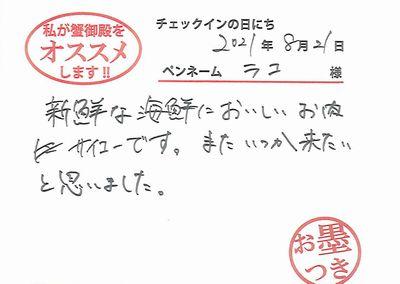 私が蟹御殿を
オススメ
します!!
チェックインの日にち
2021年8月21日
ペンネーム ラコ 様
新鮮な海鮮においしいお肉
サイコーです。またいつか来たい
と思いました。
お墨
つき